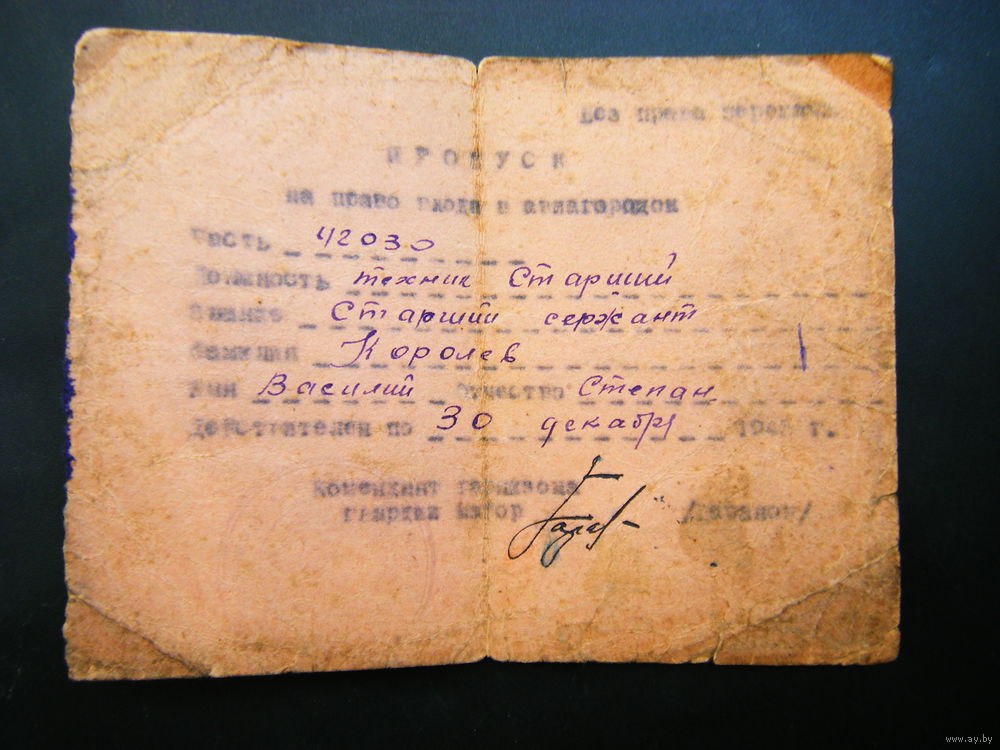 Без права передачи
ПРОПУСК
на право входа в авиагородок
Часть 42030
Должность техник Старший
Звание Старший сержант
Фамилия Королев
Имя Василий Отчество Степан
Действителен по 30 декабря г.
Комендант гарнизона
гвардии майор
www.ay.by